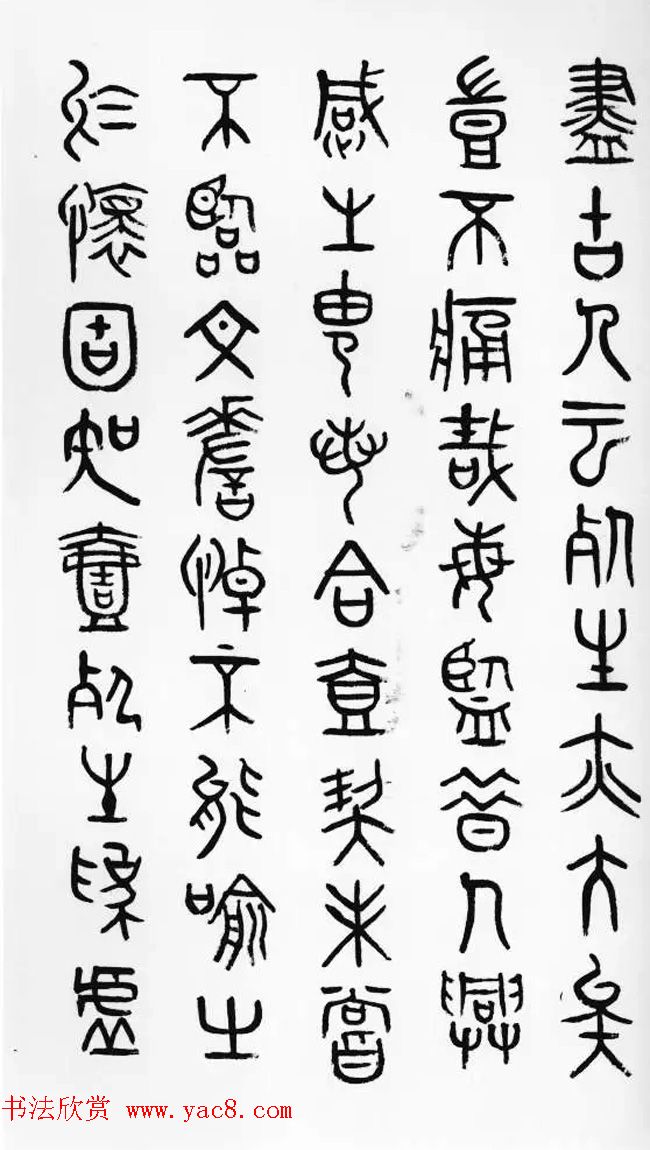 盡古人云死生亦大矣
豈不痛哉每監昔人興
感之由也合壹契未嘗
不臨文嗟悼不能喻之
於懷固知壹死生為虛
书法欣赏 www.yac8.com